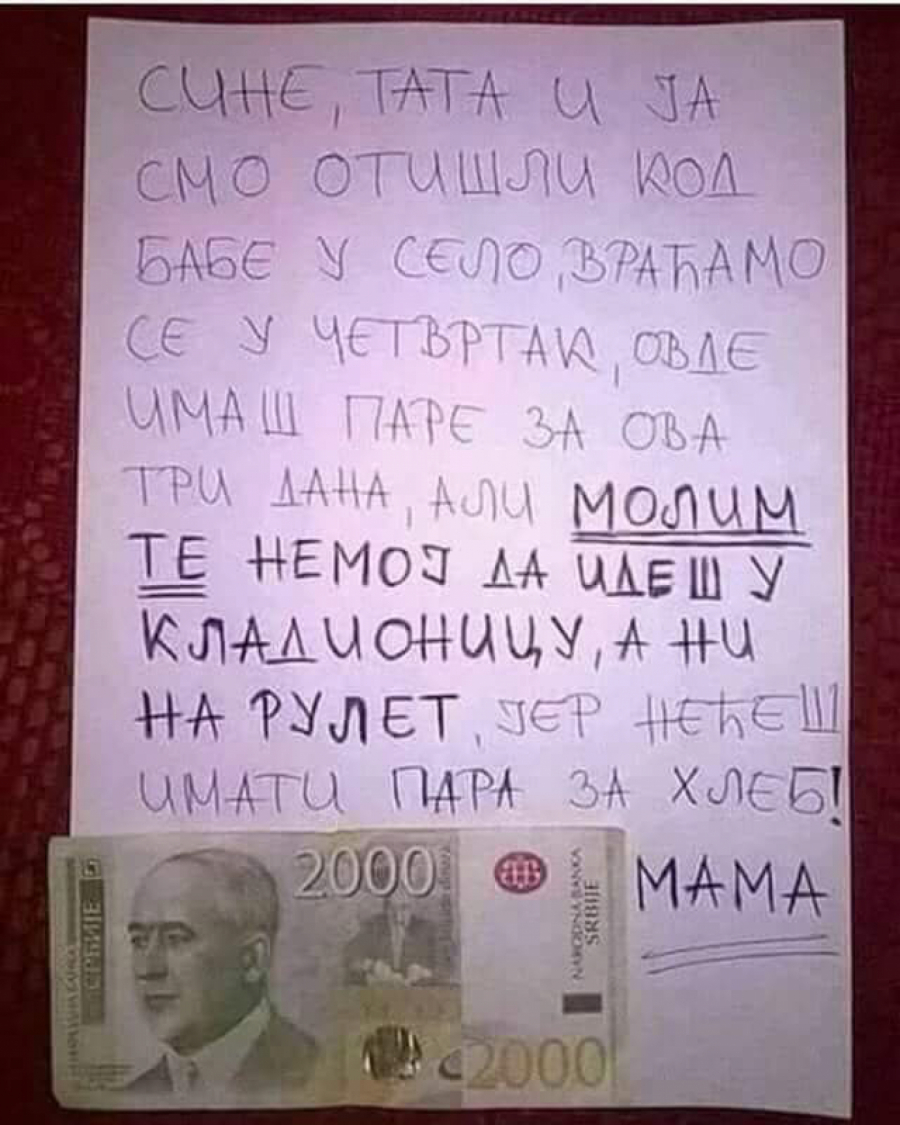 СИНЕ, ТАТА И ЈА
СМО ОТИШЛИ КОД
БАБЕ У СЕЛО, ВРАЋАМО
СЕ У ЧЕТВРТАК, ОВДЕ
ИМАШ ПАРЕ ЗА ОВА
ТРИ ДАНА, АЛИ МОЛИМ
ТЕ НЕМОЈ ДА ИДЕШ У
КЛАДИОНИЦУ, А НИ
НА РУЛЕТ, ЈЕР НЕЋЕШ
ИМАТИ ПАРА ЗА ХЛЕБ!
МАМА
2000
NARODNA BANKA
SRBIJE
СРБИЈЕ
2000